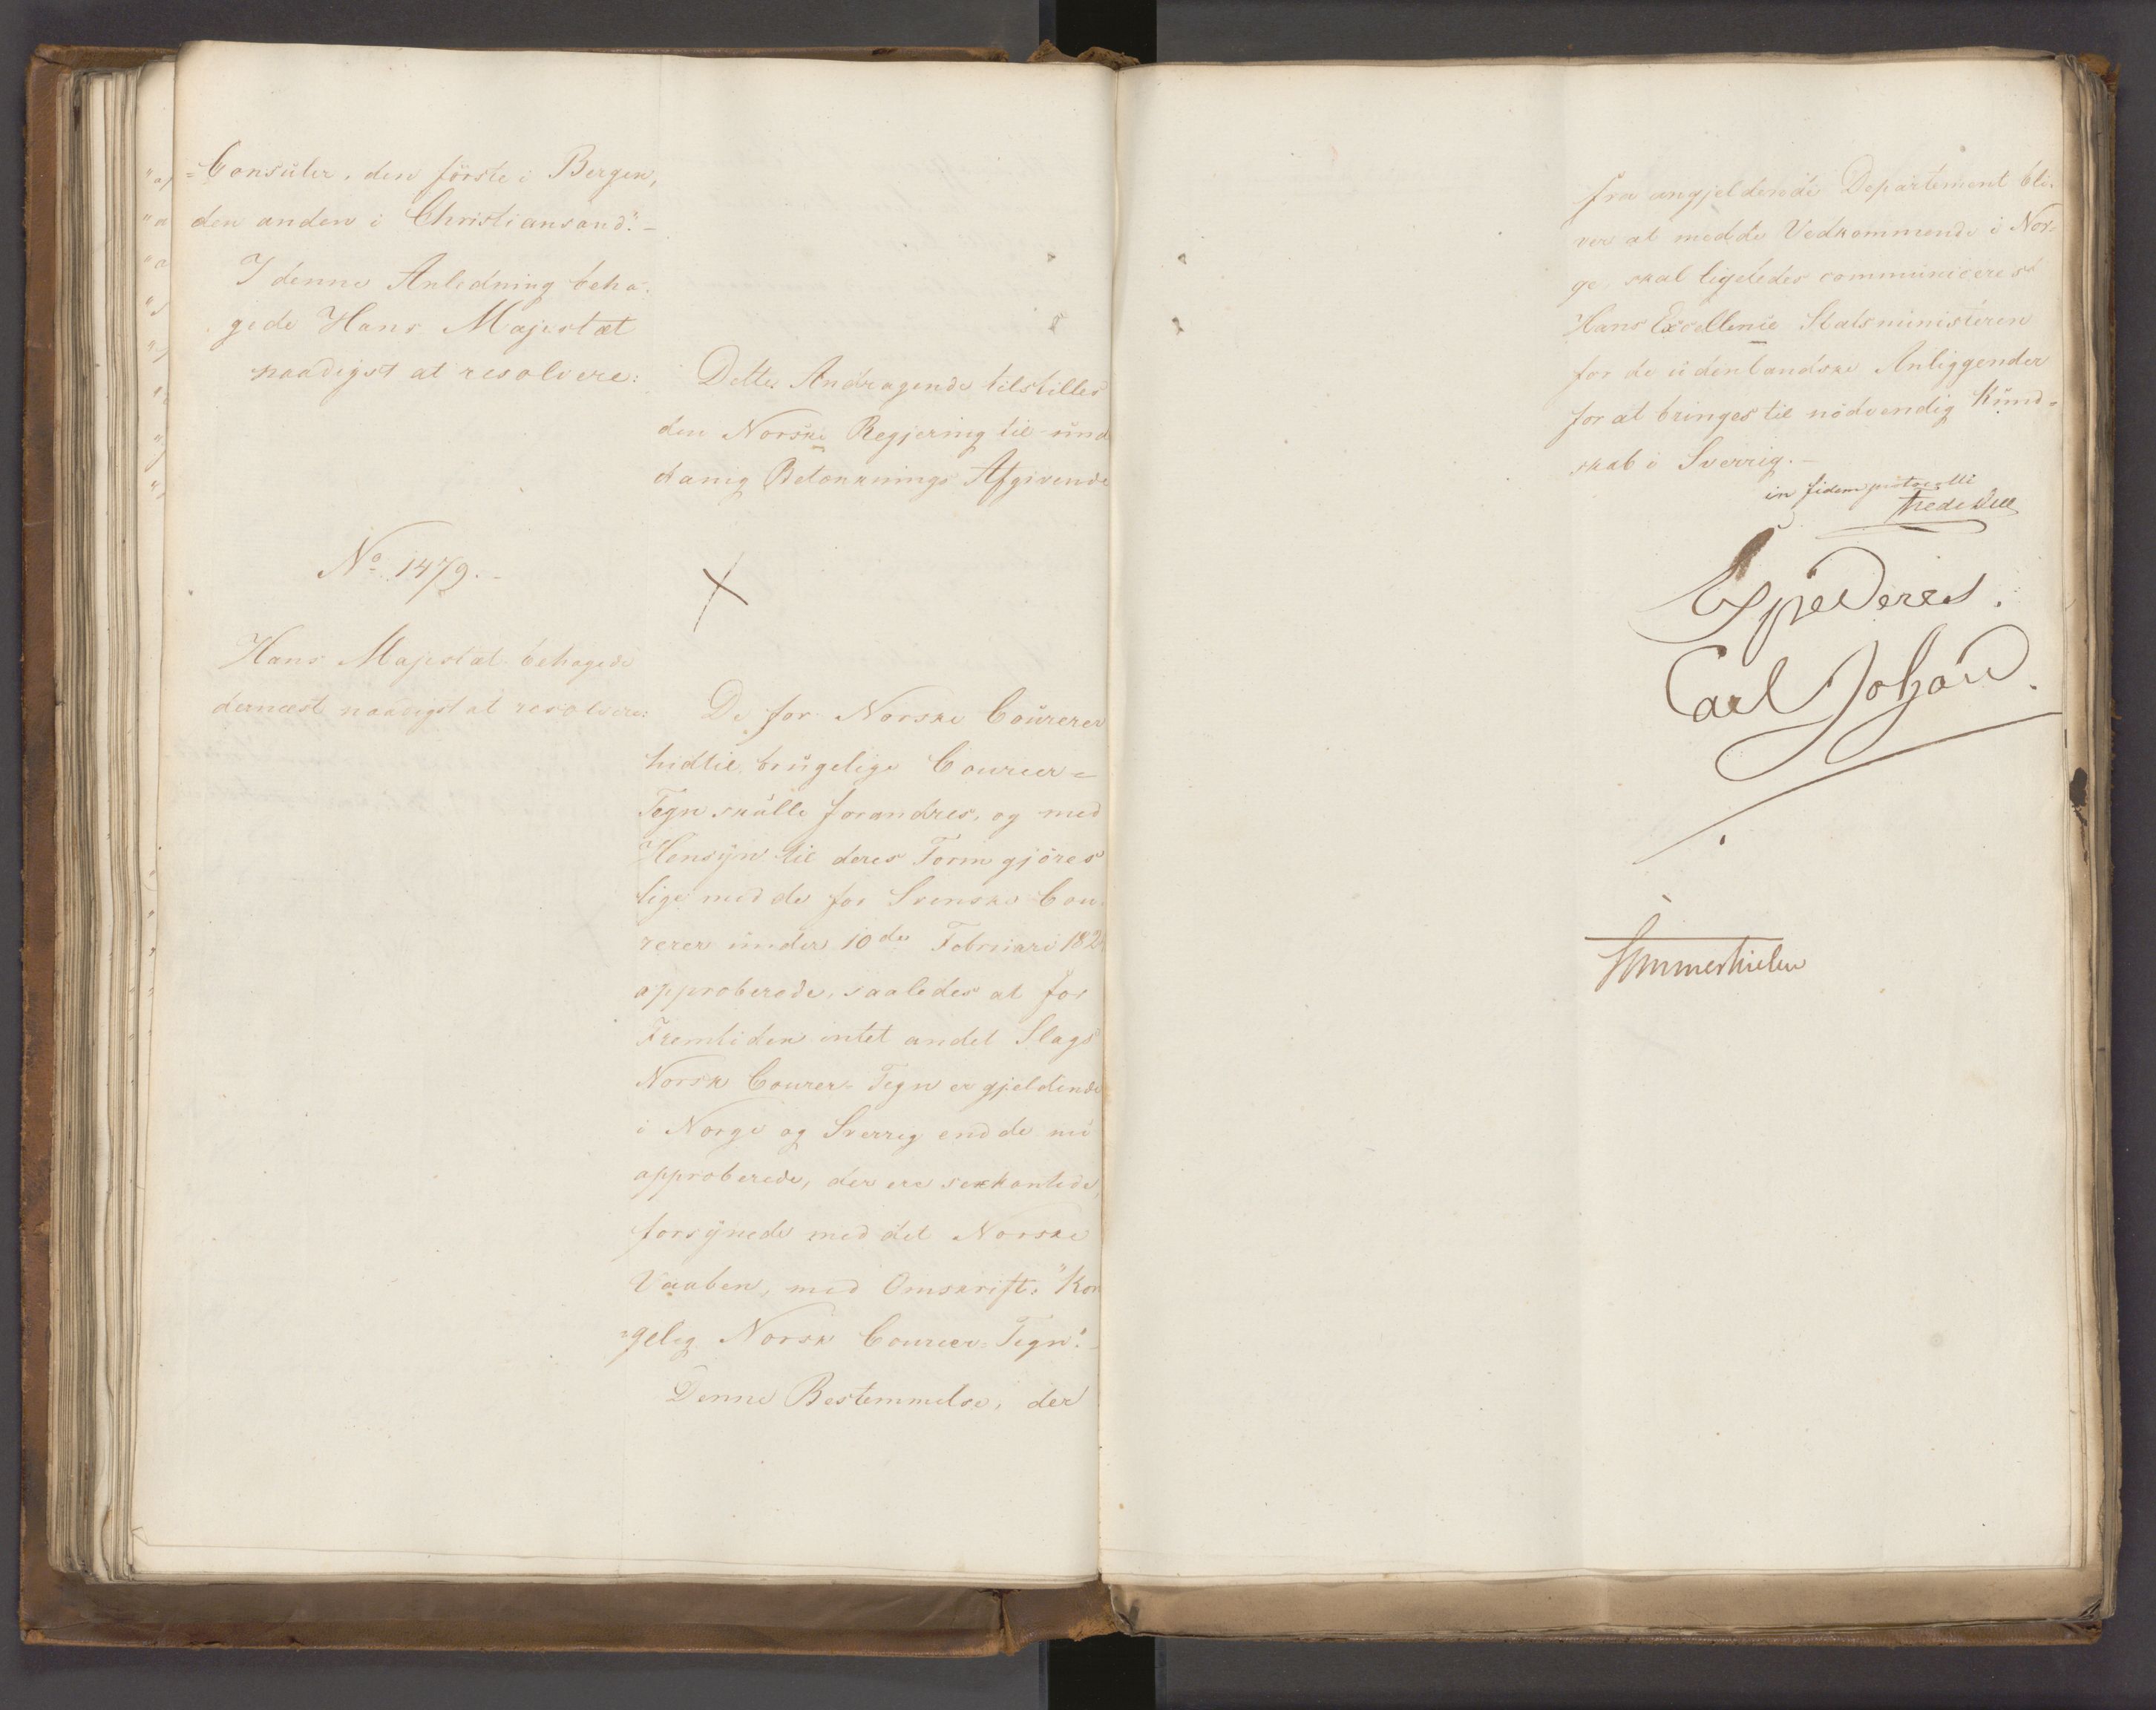 =Consuler, den förste i Bergen,
den anden i Christiansand."-
I denne Anledning beha-
gede Hans Majestæt
naadigst at resolvere:
Dette Andragende tilstilles
den Norske Regjering til und
danig Betænknings Afgivende
No 1479.-
Hans Majestæt behagede
dernæst naadigst at resolvere:
De for Norske Courerer
hidtil brugelige Courier=
Tegn skulle forandres, og med
Hensÿn til deres Form gjöres
lige med de for Svenske Cou-
rerer under 10de Februari 182
approberede, saaledes at for
Fremtiden intet andet Slags
Norsk Courer-Tegn er gjeldende
i Norge og Sverrig end de nu
approberede, der ere sexkantede,
forsÿnede med det Norske
Vaaben, med Omskrift: "Kon
=gelig Norsk Courier-Tegn."-
Denne Bestemmelse, der
fra angjeldende Departement bli-
ver at meddele Vedkommende i Nor-
ge, skal ligeledes communiceres
Hans Excellence Statsministeren
for de udenlandske Anliggender
for at bringes til nödvendig Kund=
skab i Sverrig.-
in fidem protocolli
Expederes.
Carl Johan
Sommerhielm